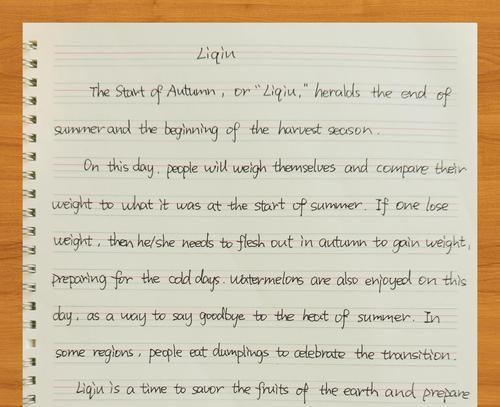 Liqiu
The Start of Autumn, or "Liqiu," heralds the end of
summer and the beginning of the harvest season.
On this day, people will weigh themselves and compare their
weight to what it was at the start of summer. If one lose
weight, then he/she needs to flesh out in autumn to gain weight,
preparing for the cold days. Watermelons are also enjoyed on this
day, as a way to say goodbye to the heat of summer. In
some regions, people eat dumplings to celebrate the transition.
Liqiu is a time to savor the fruits of the earth and prepare